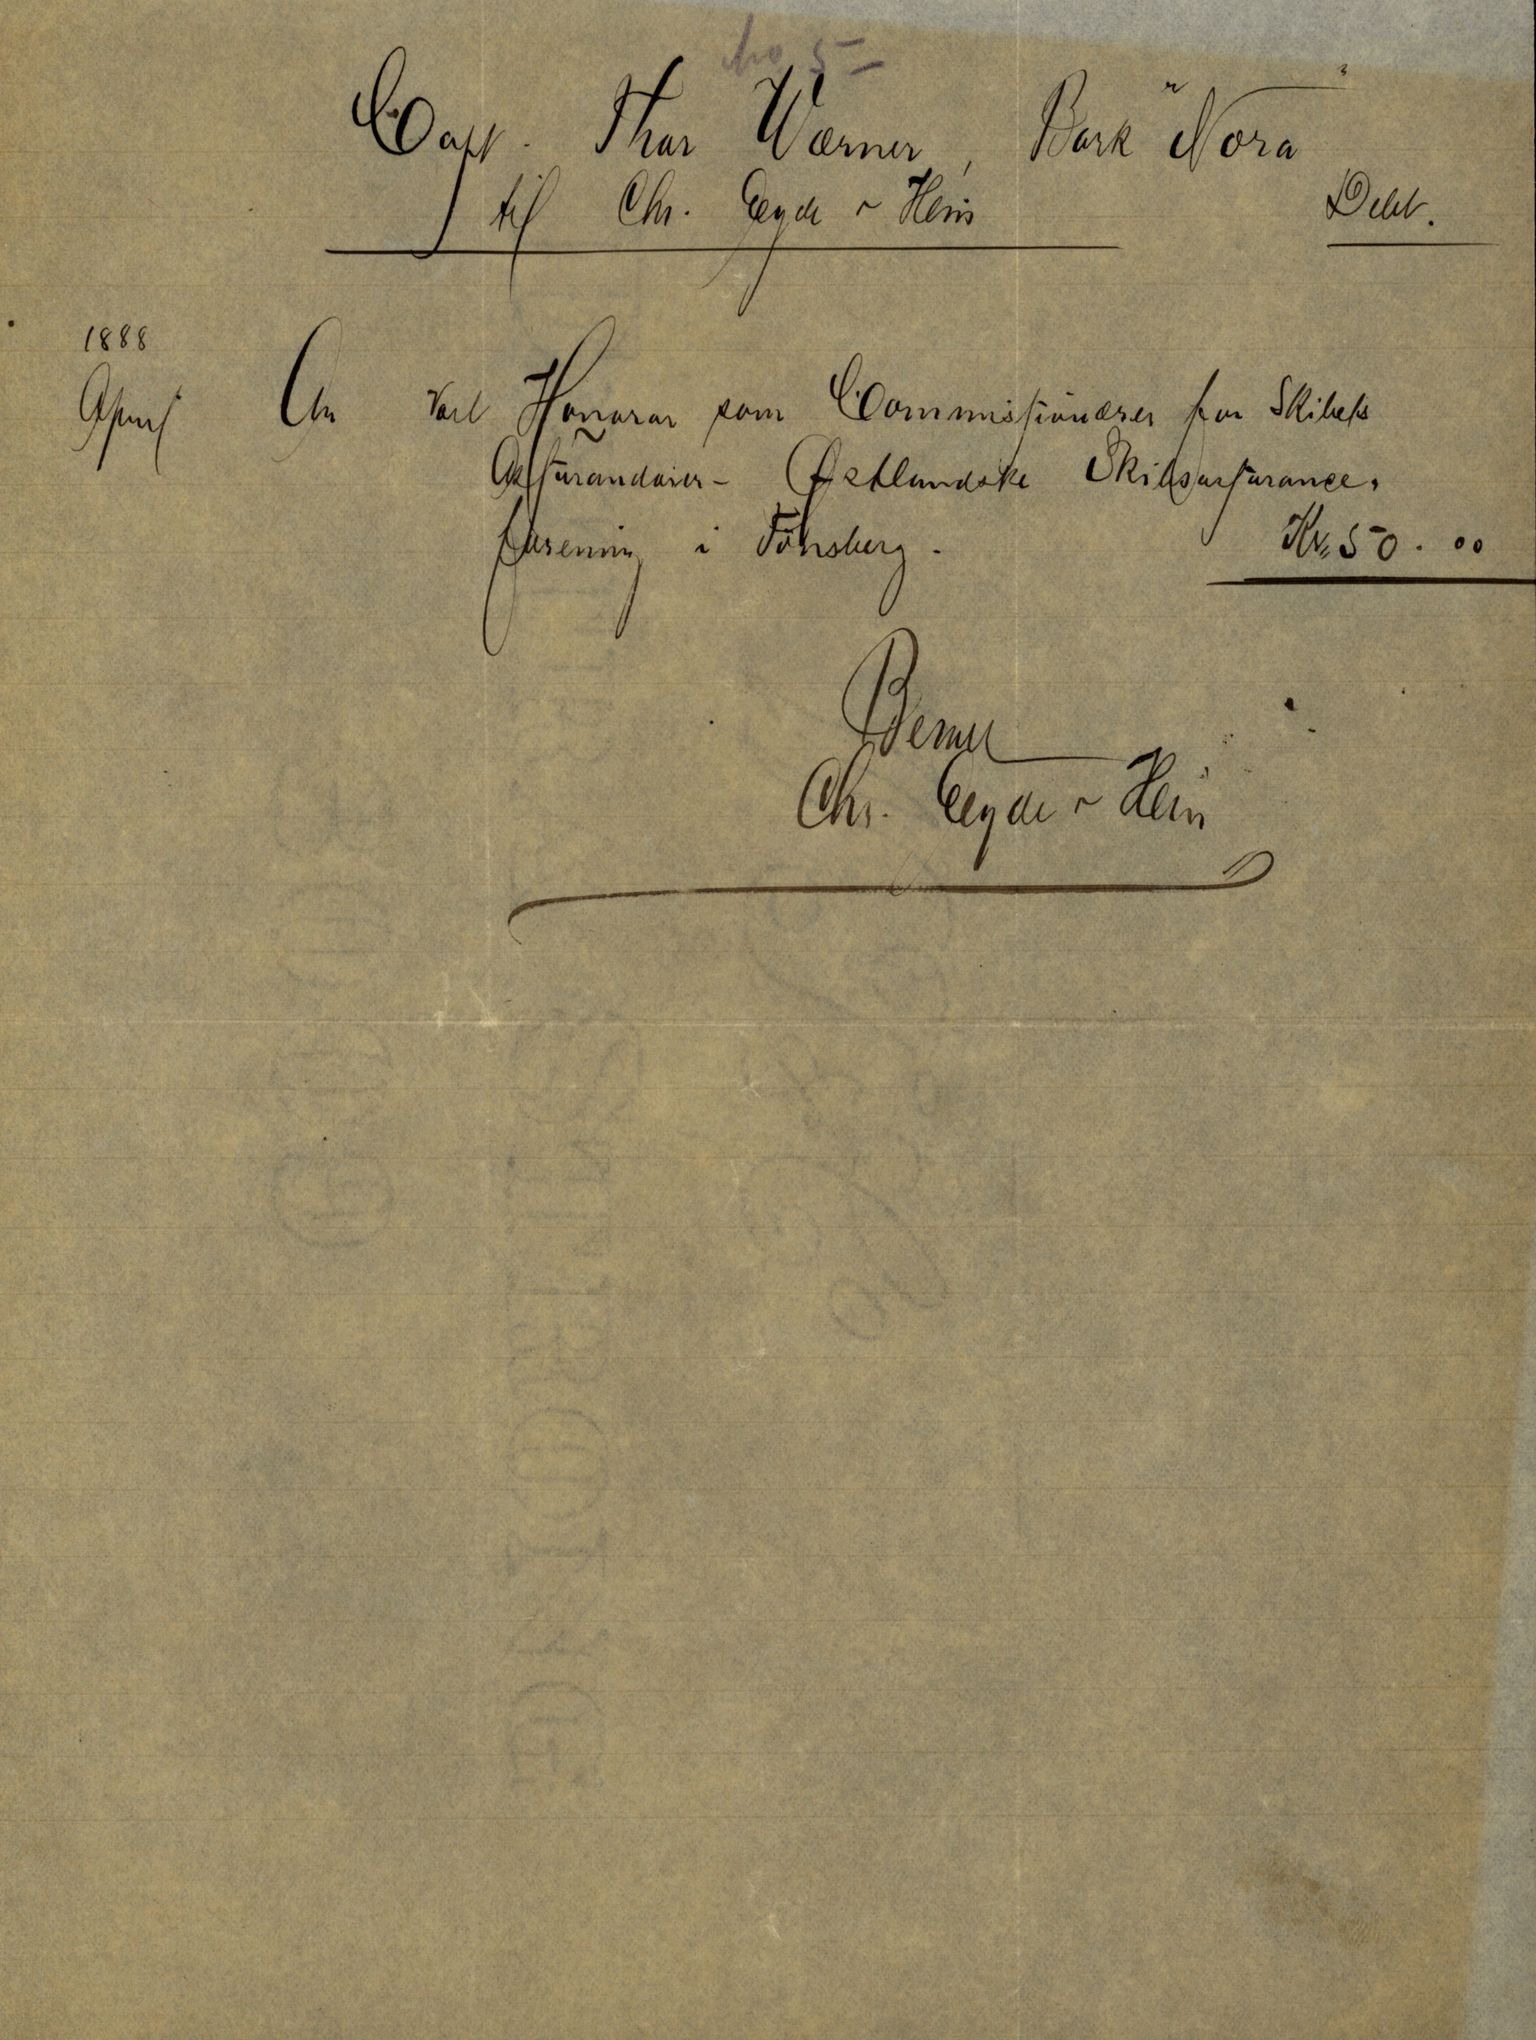 No 5
Capt. Thor Wærner, Bark "Nora"
til Chr. Eyde & Hein Debt.
1888
April An vort Honorar som Commissionærer for Skibets
Assurandører - Østlandske Skibsassurance-
forening i Tønsberg. Kr. 50.00
Chr. Eyde & Hein